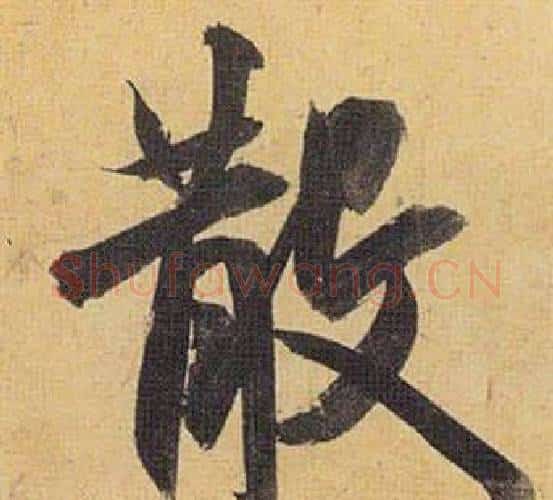 散
Shufawang.CN